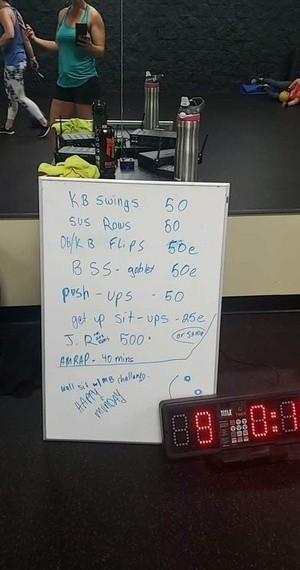 KB swings 50
sus Rows 50
Db/KB Flips 50e
BSS - goblet 50e
push - ups - 50
get up sit - ups - 25e
J. R 500
AMRAP - 40 mins
wall sit w/MB challenge.
HAPPY
MONDAY
TITLE
9 0:1